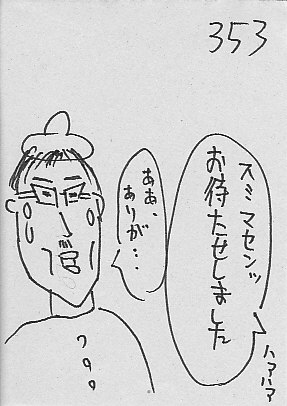 353
スミマセンッ
お待たせしました
ハアハア
ああ、
ありが…